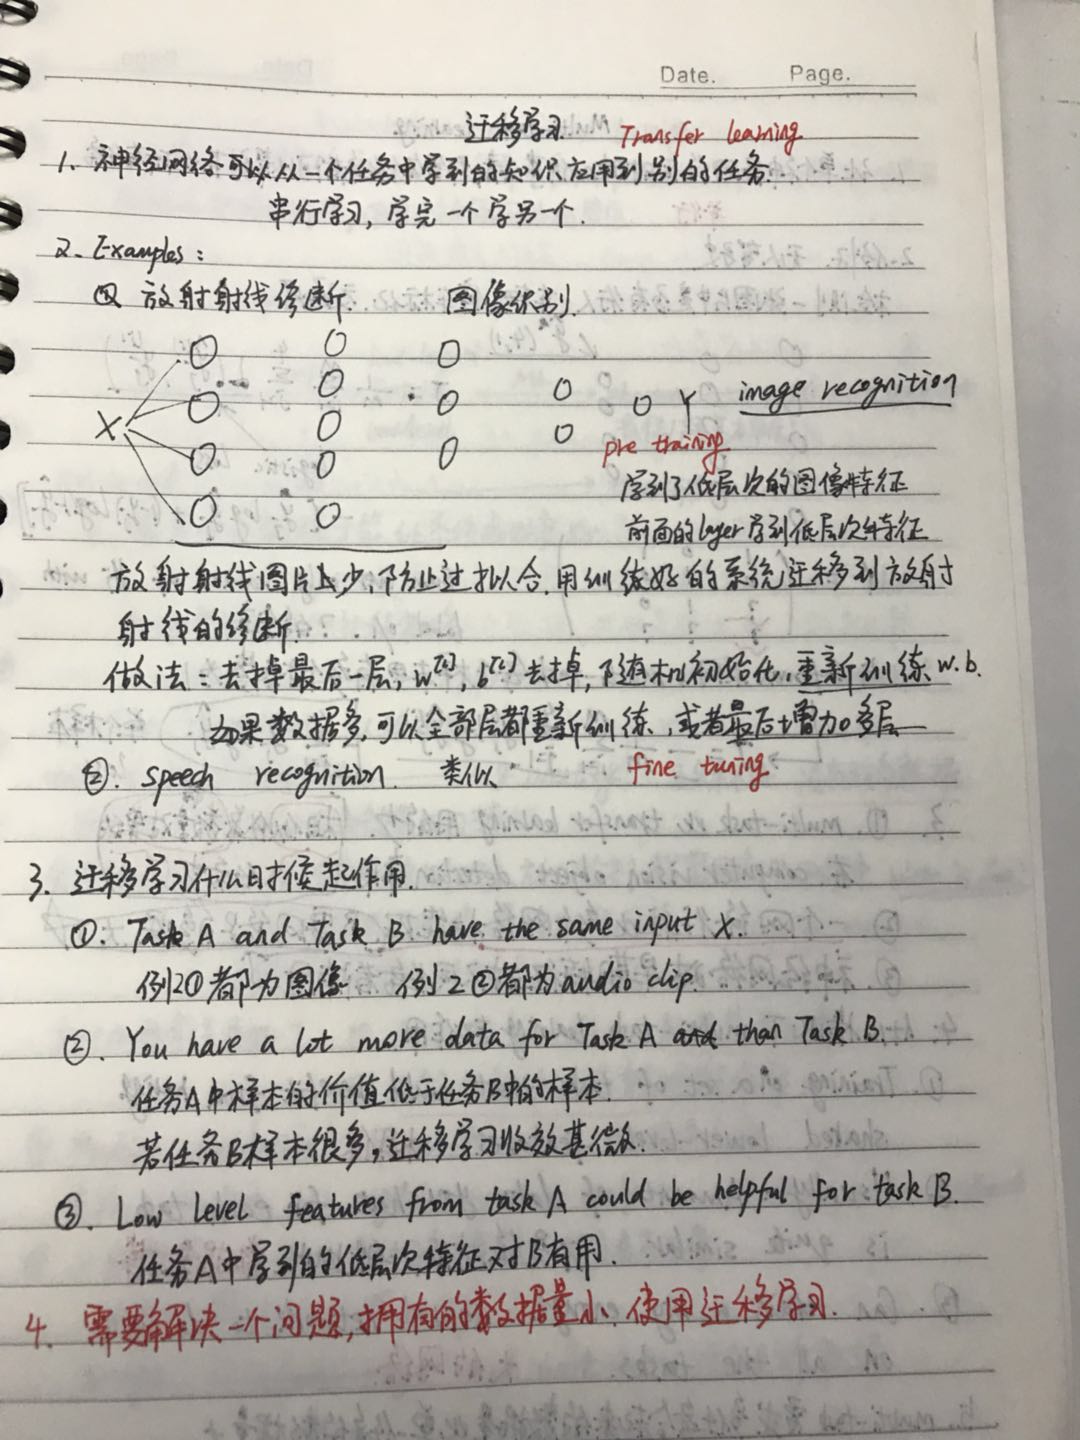 Date. Page.
迁移学习 Transfer learning
1. 神经网络可以从一个任务中学到的知识应用到别的任务.
串行学习, 学完一个学另一个.
2. Examples:
① 放射射线诊断. 图像识别.
X Y image recognition
pre training
学到了低层次的图像特征
前面的layer学到低层次特征
放射射线图片少, 防止过拟合. 用训练好的系统迁移到放射
射线的诊断.
做法: 去掉最后一层, w[L], b[L]去掉, 随机初始化, 重新训练 w.b.
如果数据多, 可以全部层都重新训练, 或者最后增加多层
②. speech recognition. 类似 fine tuning.
3. 迁移学习什么时候起作用.
①. Task A and Task B have the same input X.
例2①都为图像 例2②都为audio clip.
②. You have a lot more data for Task A than Task B.
任务A中样本的价值低于任务B中的样本.
若任务B样本很多, 迁移学习收效甚微.
③. Low level features from task A could be helpful for task B.
任务A中学到的低层次特征对B有用.
4. 需要解决一个问题, 拥有的数据量小. 使用迁移学习.